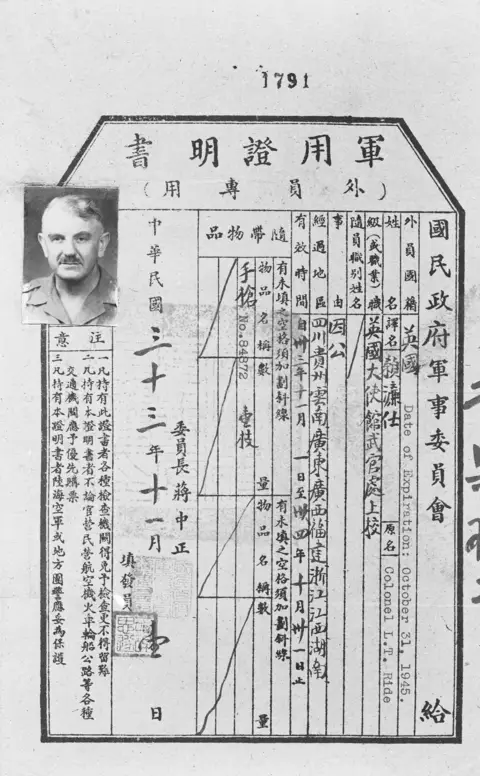 1791
軍用證明書
（外員專用）
國民政府軍事委員會 給
外員國籍 英國 Date of Expiration: October 31, 1945.
姓名 譯名 賴濂仕 原名 Colonel L.T. Ride
級職（或職業） 英國大使館武官處上校
隨員職別姓名
事由 因公
經過地區 四川貴州雲南廣東廣西福建浙江江西湖南
有效時間 自卅三年十一月一日至卅四年十月卅一日止
隨帶物品
有未填之空格須加劃斜線 有未填之空格須加劃斜線
物品名稱 數量 物品名稱 數量
手槍 No.84872 壹枝
中華民國三十三年十一月 日
委員長蔣中正
填發員
注意
一凡持有此證書者各種檢查機關得免予檢查更不得留難
二凡持有本證明書者不論官營民營航空機火車輪船公路等各種
交通機關應予優先購票
三凡持有本證明書者陸海空軍或地方團警應妥為保護